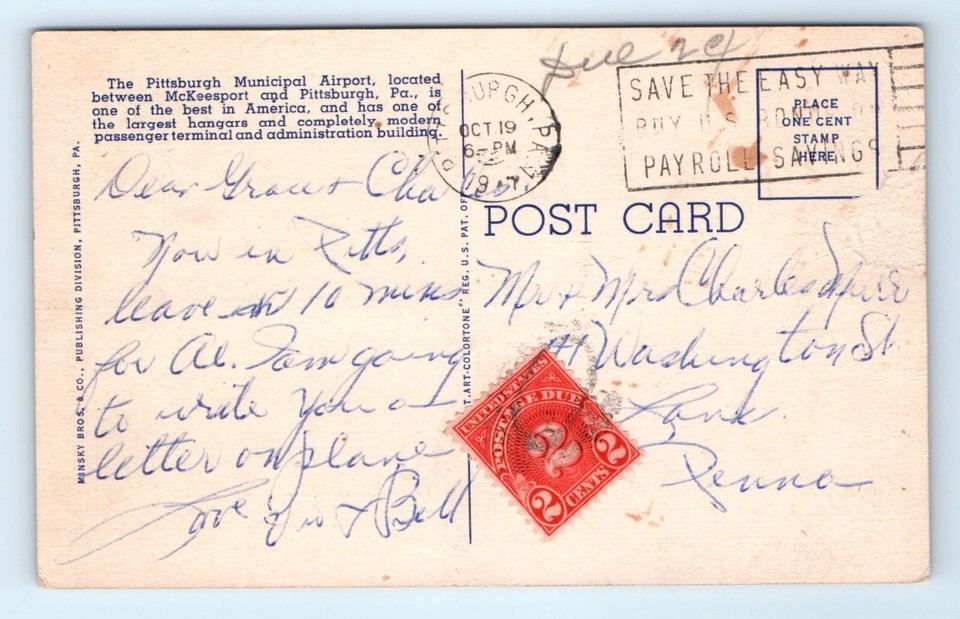 Due 2¢
The Pittsburgh Municipal Airport, located
between McKeesport and Pittsburgh, Pa., is
one of the best in America, and has one of
the largest hangars and completely modern
passenger terminal and administration building.
OCT 19
6 - PM
SAVE THE EASY WAY
BUY U.S. BONDS
PAYROLL SAVINGS
PLACE
ONE CENT
STAMP
HERE
POST CARD
MINSKY BROS. & CO., PUBLISHING DIVISION, PITTSBURGH, PA.
T. ART-COLORTONE" REG. U.S. PAT. OF
Dear Grace & Charles.
Now in Pitts,
leave in 10 mins
for Al. I am going
to write you a
letter on plane
Love & Bell
Mr & Mrs Charles
41 Washington St
Penna
UNITED STATES
POSTAGE DUE
2
2 CENTS 2